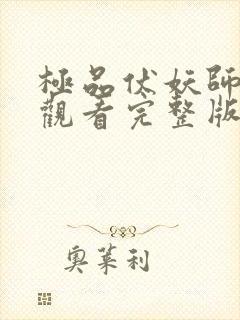 極品伏妖師
觀看完整版
奧萊利